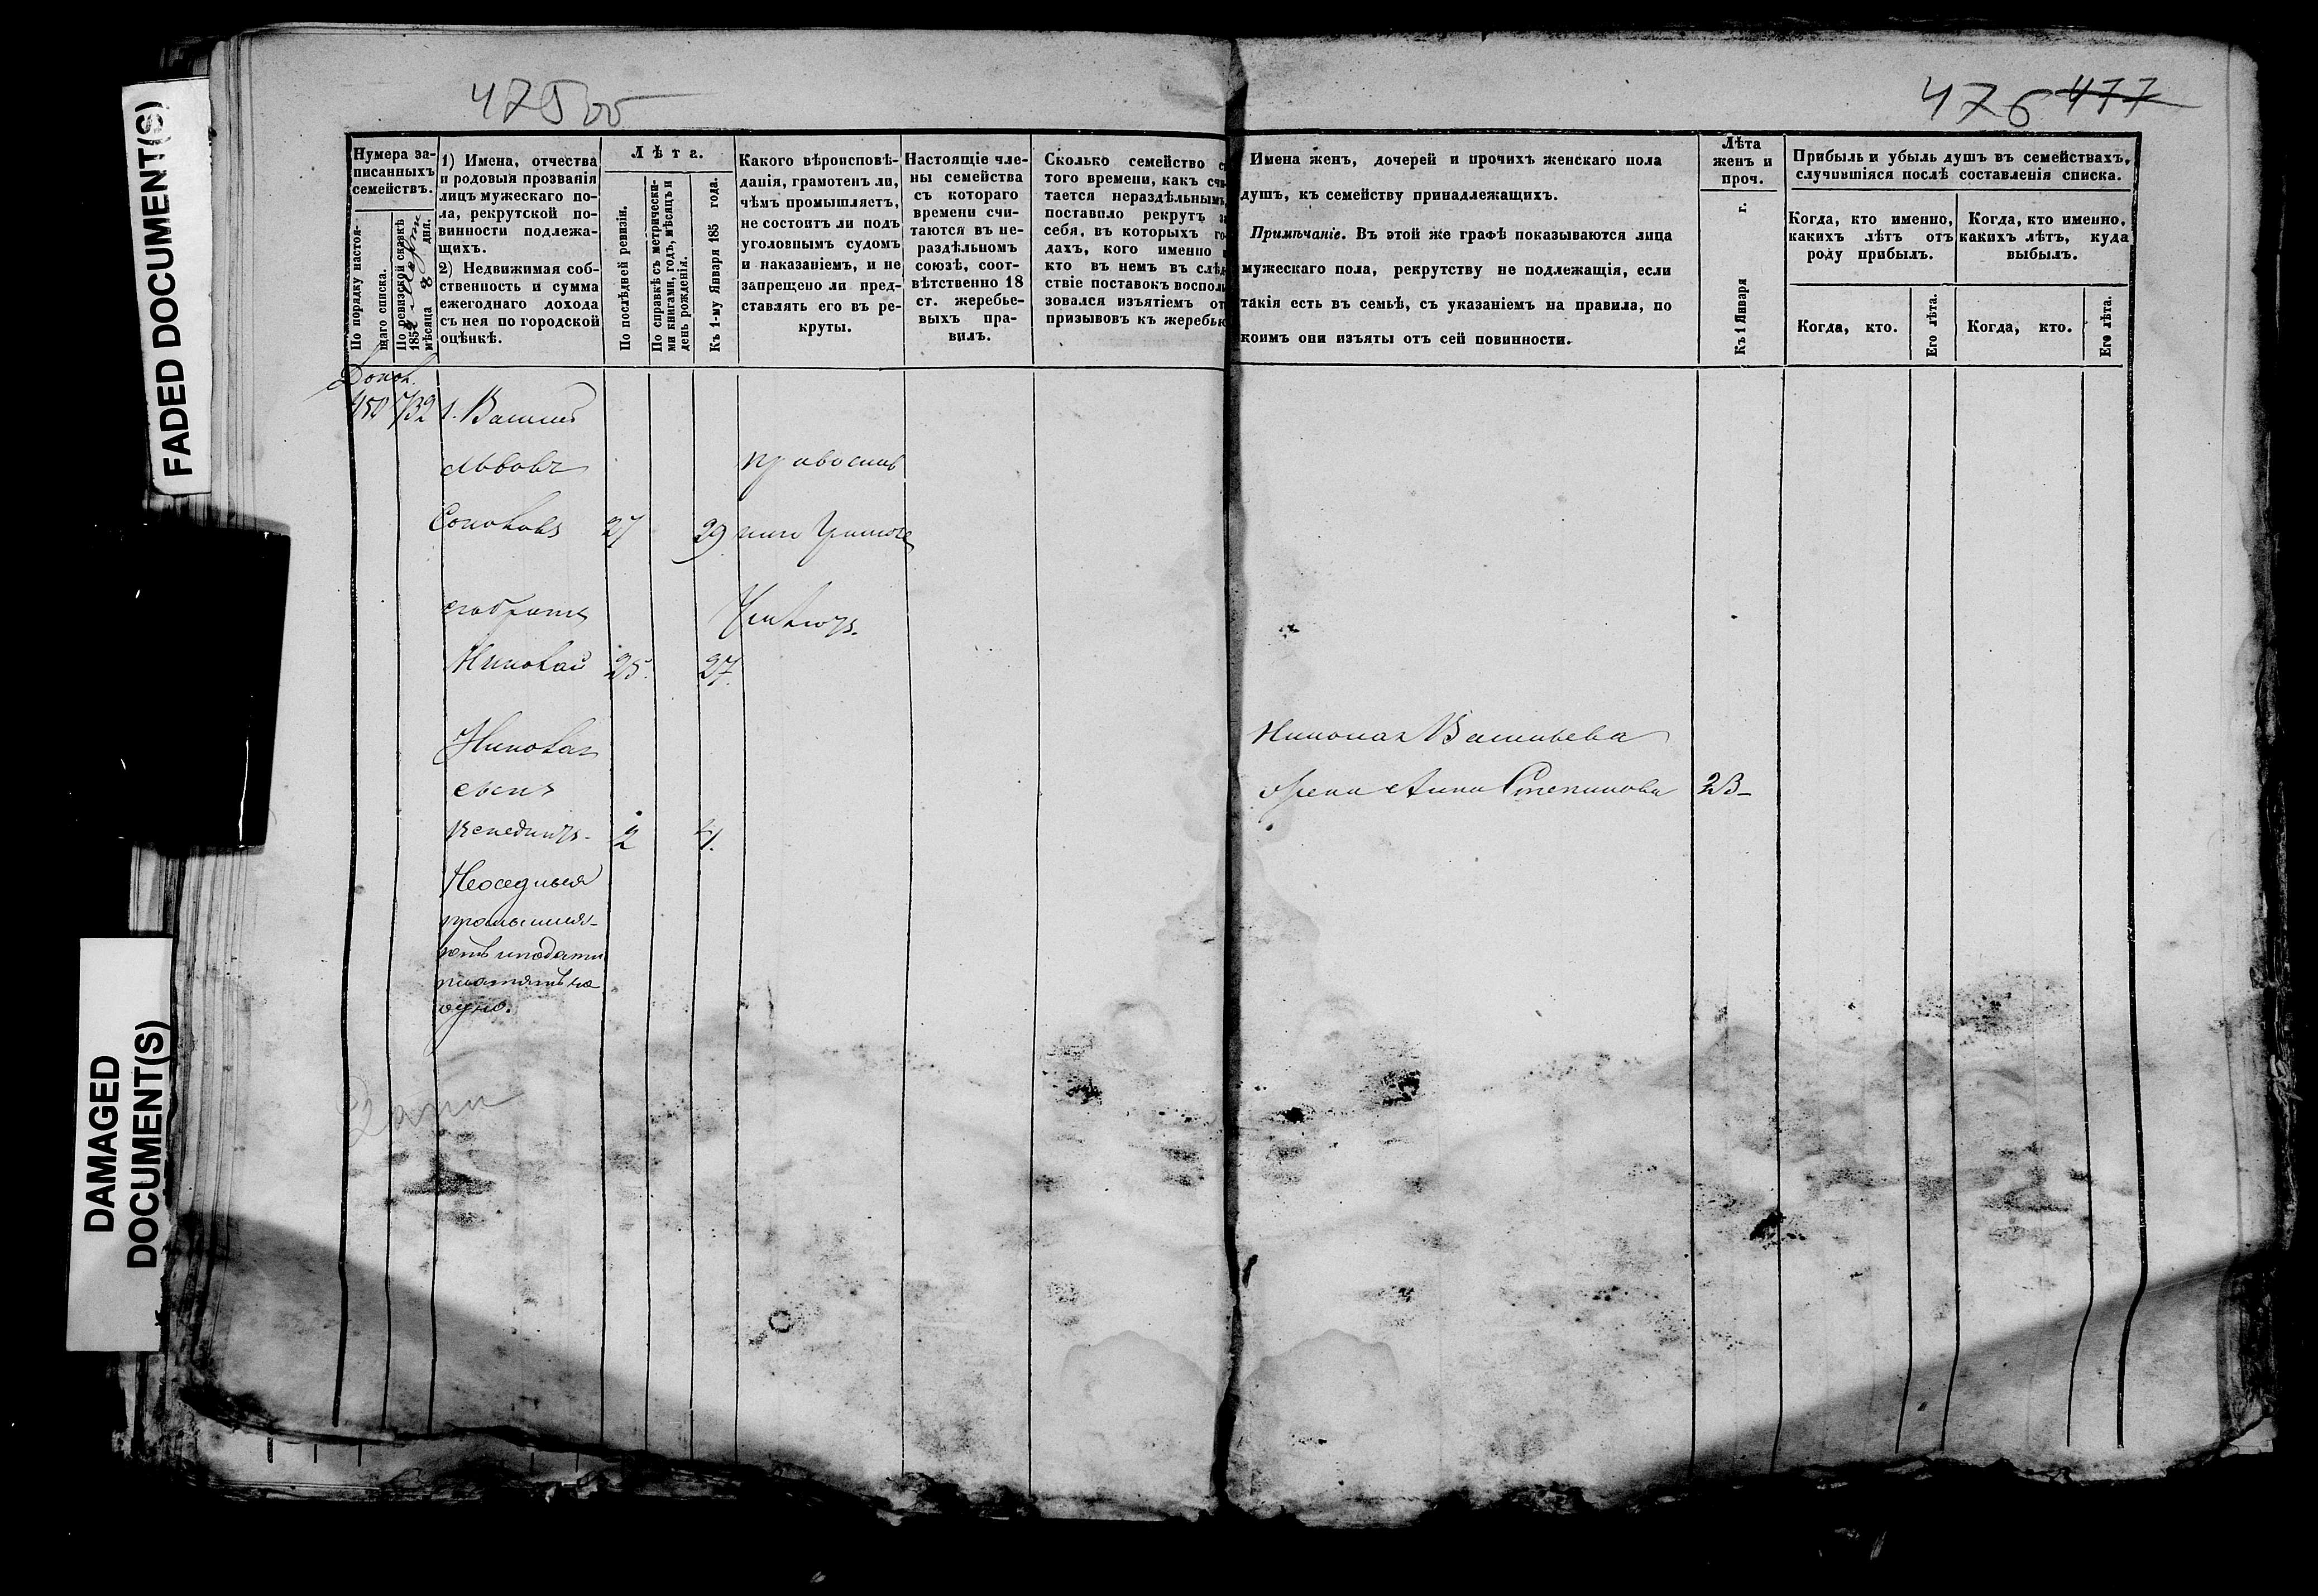 FADED DOCUMENT(S)
DAMAGED
DOCUMENT(S)
475 об
476 477
Нумера за-
писанныхъ
семействъ.
По порядку настоя-
щаго списка.
По ревизской сказкѣ
185 марта
мѣсяца 8 дня.
1) Имена, отчества
и родовыя прозванія
лицъ мужескаго по-
ла, рекрутской по-
винности подлежа-
щихъ.
2) Недвижимая соб-
ственность и сумма
ежегоднаго дохода
съ нея по городской
оцѣнкѣ.
Лѣта.
По послѣдней ревизіи.
По справкѣ съ метрически-
ми книгами, годъ, мѣсяцъ и
день рожденія.
Къ 1-му Января 185 года.
Какого вѣроисповѣ-
данія, грамотенъ ли,
чѣмъ промышляетъ,
не состоитъ ли подъ
уголовнымъ судомъ
и наказаніемъ, и не
запрещено ли пред-
ставлять его въ ре-
круты.
Настоящіе чле-
ны семейства
съ котораго
времени счи-
таются въ не-
раздѣльномъ
союзѣ, соот-
вѣтственно 18
ст. жеребье-
выхъ пра-
вилъ.
Сколько семейство с
того времени, какъ счи-
тается нераздѣльнымъ,
поставило рекрутъ за
себя, въ которыхъ го-
дахъ, кого именно и
кто въ немъ въ слѣд-
ствіе поставокъ восполь-
зовался изъятіемъ отъ
призывовъ къ жеребью
Имена женъ, дочерей и прочихъ женскаго пола
душъ, къ семейству принадлежащихъ.
Примѣчаніе. Въ этой же графѣ показываются лица
мужескаго пола, рекрутству не подлежащія, если
такія есть въ семьѣ, съ указаніемъ на правила, по
коимъ они изъяты отъ сей повинности.
Лѣта
женъ и
проч.
Къ 1 Января г.
Прибыль и убыль душъ въ семействахъ,
случившіяся послѣ составленія списка.
Когда, кто именно,
какихъ лѣтъ отъ
роду прибылъ.
Когда, кто именно,
какихъ лѣтъ, куда
выбылъ.
Когда, кто.
Его лѣта.
Когда, кто.
Его лѣта.
450 1. Василій
Львовъ православ
Соколовъ 27 29
его братъ
Николай 25. 27.
Николая
сынъ
Венедиктъ. 2 4.
Николая Васильева
жена Анна Степанова 23
Неоседлыя
промышля-
ютъ и подати
платятъ за
одно.